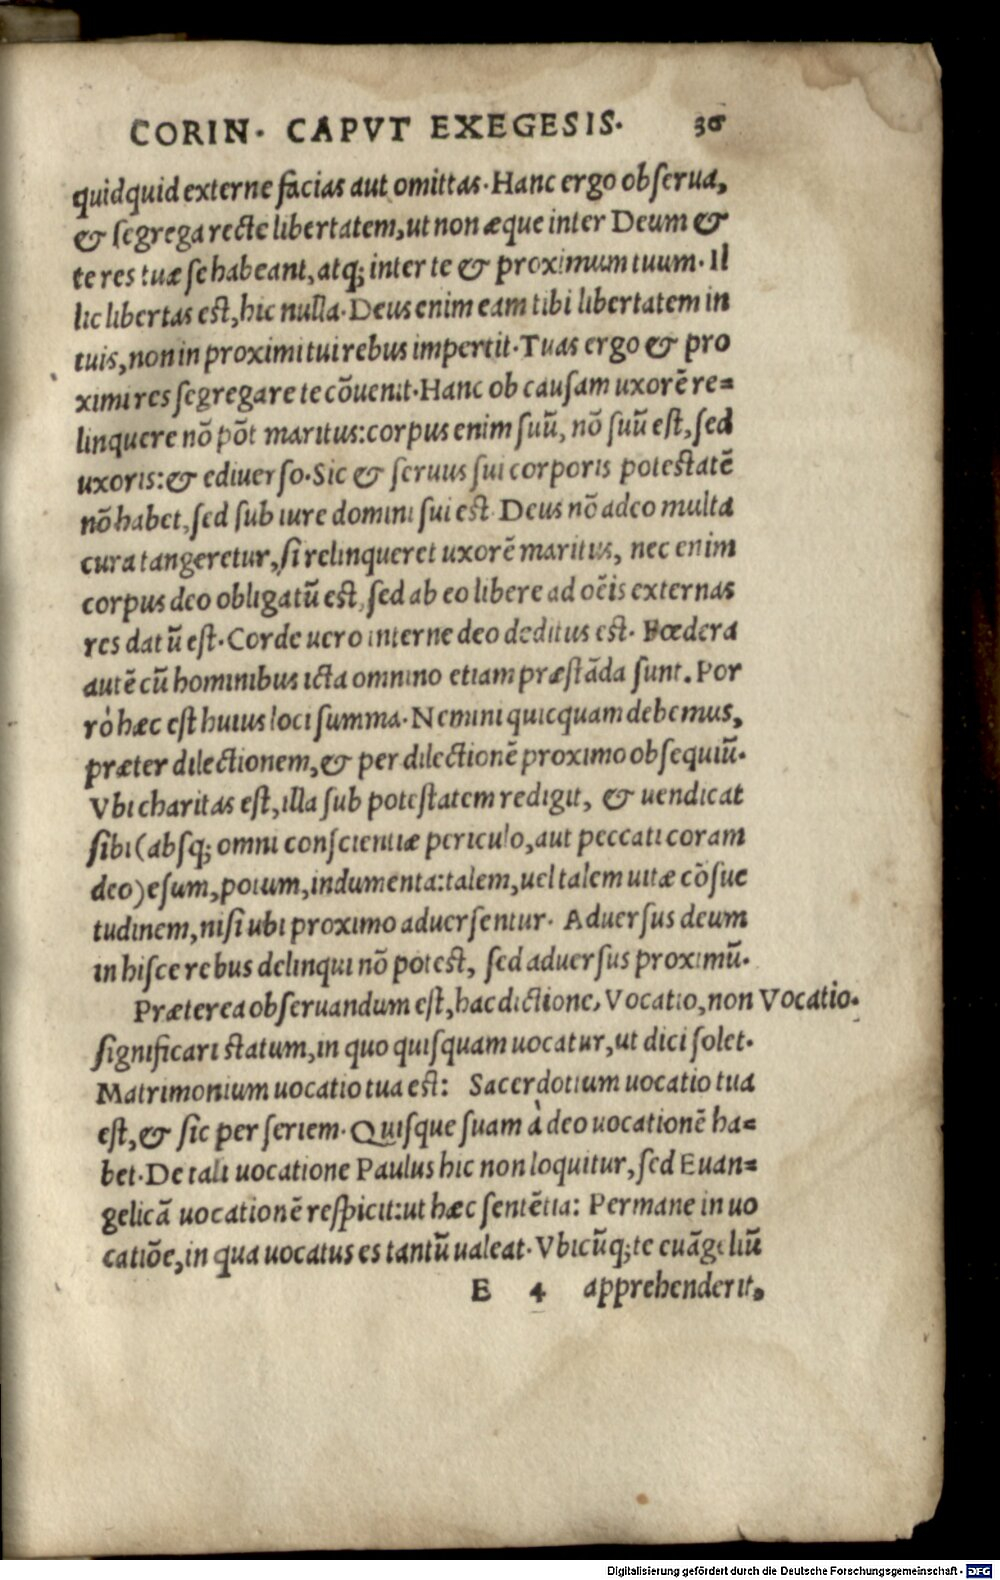 CORIN. CAPVT EXEGESIS. 36
quidquid externe facias aut omittas. Hanc ergo obſerua,
& ſegrega recte libertatem, ut non æque inter Deum &
te res tuæ ſe habeant, atq; inter te & proximum tuum. Il
lic libertas eſt, hic nulla. Deus enim eam tibi libertatem in
tuis, non in proximi tui rebus impertit. Tuas ergo & pro
ximi res ſegregare te cōuenit. Hanc ob cauſam uxorē re=
linquere nō pōt maritus: corpus enim ſuū, nō ſuū eſt, ſed
uxoris: & ediuerſo. Sic & ſeruus ſui corporis poteſtatē
nō habet, ſed ſub iure domini ſui est. Deus nō adeo multa
cura tangeretur, ſi relinqueret uxorē maritus, nec enim
corpus deo obligatū eſt, ſed ab eo libere ad oēis externas
res datū eſt. Corde uero interne deo deditus est. Fœdera
autē cū hominibus icta omnino etiam præſtāda ſunt. Por
rò hæc eſt huius loci ſumma. Nemini quicquam debemus,
præter dilectionem, & per dilectionē proximo obſequiū.
Vbi charitas eſt, illa ſub poteſtatem redigit, & uendicat
ſibi (abſq; omni conſcientiæ periculo, aut peccati coram
deo) eſum, potum, indumenta: talem, uel talem uitæ cōſue
tudinem, niſi ubi proximo aduerſentur. Aduerſus deum
in hiſce rebus delinqui nō poteſt, ſed aduerſus proximū.
Præterea obſeruandum eſt, hac dictione, Vocatio, non Vocatio.
ſignificari ſtatum, in quo quiſquam uocatur, ut dici ſolet.
Matrimonium uocatio tua est: Sacerdotium uocatio tua
eſt, & ſic per ſeriem. Quiſque ſuam à deo uocationē ha=
bet. De tali uocatione Paulus hic non loquitur, ſed Euan=
gelicā uocationē reſpicit: ut hæc ſentētia: Permane in uo
catiōe, in qua uocatus es tantū ualeat. Vbicūq; te euāgeliū
E 4 apprehenderit,
Digitalisierung gefördert durch die Deutsche Forschungsgemeinschaft - DFG